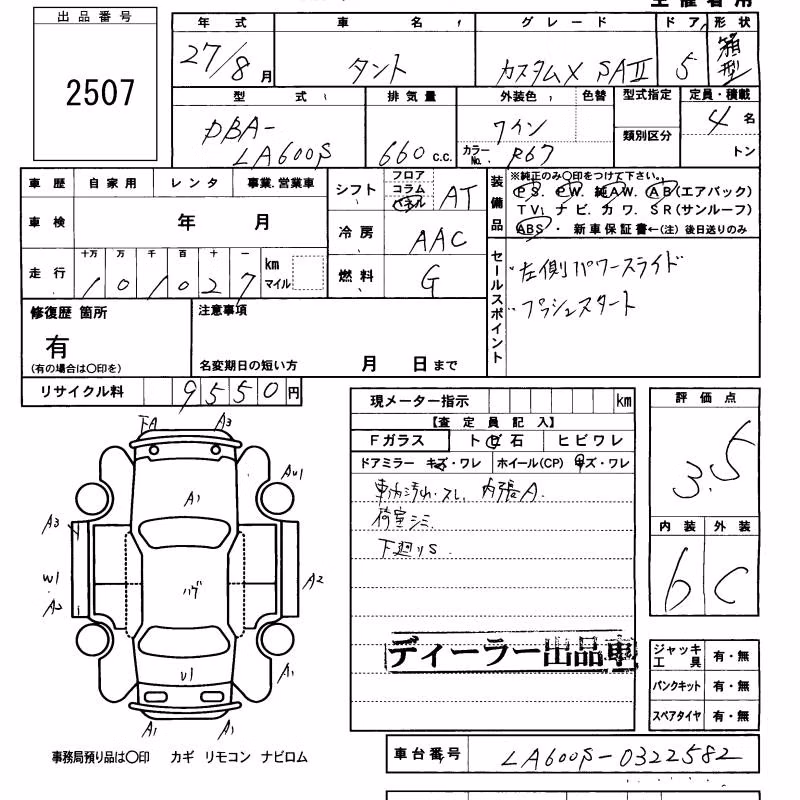 出品番号
2507
年式 車名 グレード ドア 形状
27/8月 タント カスタムX SAⅡ 5 箱型
型式 排気量 外装色 色替 型式指定 定員・積載
DBA-LA600S 660c.c. ワイン 4名
類別区分 トン
カラーNo. R67
車歴 自家用 レンタ 事業.営業車
シフト フロア コラム パネル AT
装備品 ※純正のみ〇印をつけて下さい。
PS. PW. 純AW. AB(エアバック)
TV. ナビ. カワ. SR(サンルーフ)
ABS ・ 新車保証書←(注) 後日送りのみ
車検 年 月
冷房 AAC
走行 十万 万 千 百 十 一 km マイル
101027
燃料 G
セールスポイント
・左側パワースライド
・プッシュスタート
修復歴 箇所
有
(有の場合は〇印を)
注意事項
名変期日の短い方 月 日まで
リサイクル料 9550円
現メーター指示 km
【査定員記入】
Fガラス トビ石 ヒビワレ
ドアミラー キズ・ワレ ホイール(CP) キズ・ワレ
車内汚れ・スレ 内張A.
荷室シミ
下廻りS
評価点
3.5
内装 外装
6 C
下A A3
A1 AU1
A3
W1 A2
ハゲ
A2
U1 A1
A1 A1
ディーラー出品車
ジャッキ工具 有・無
パンクキット 有・無
スペアタイヤ 有・無
事務局預り品は〇印 カギ リモコン ナビロム
車台番号 LA600S-0322582